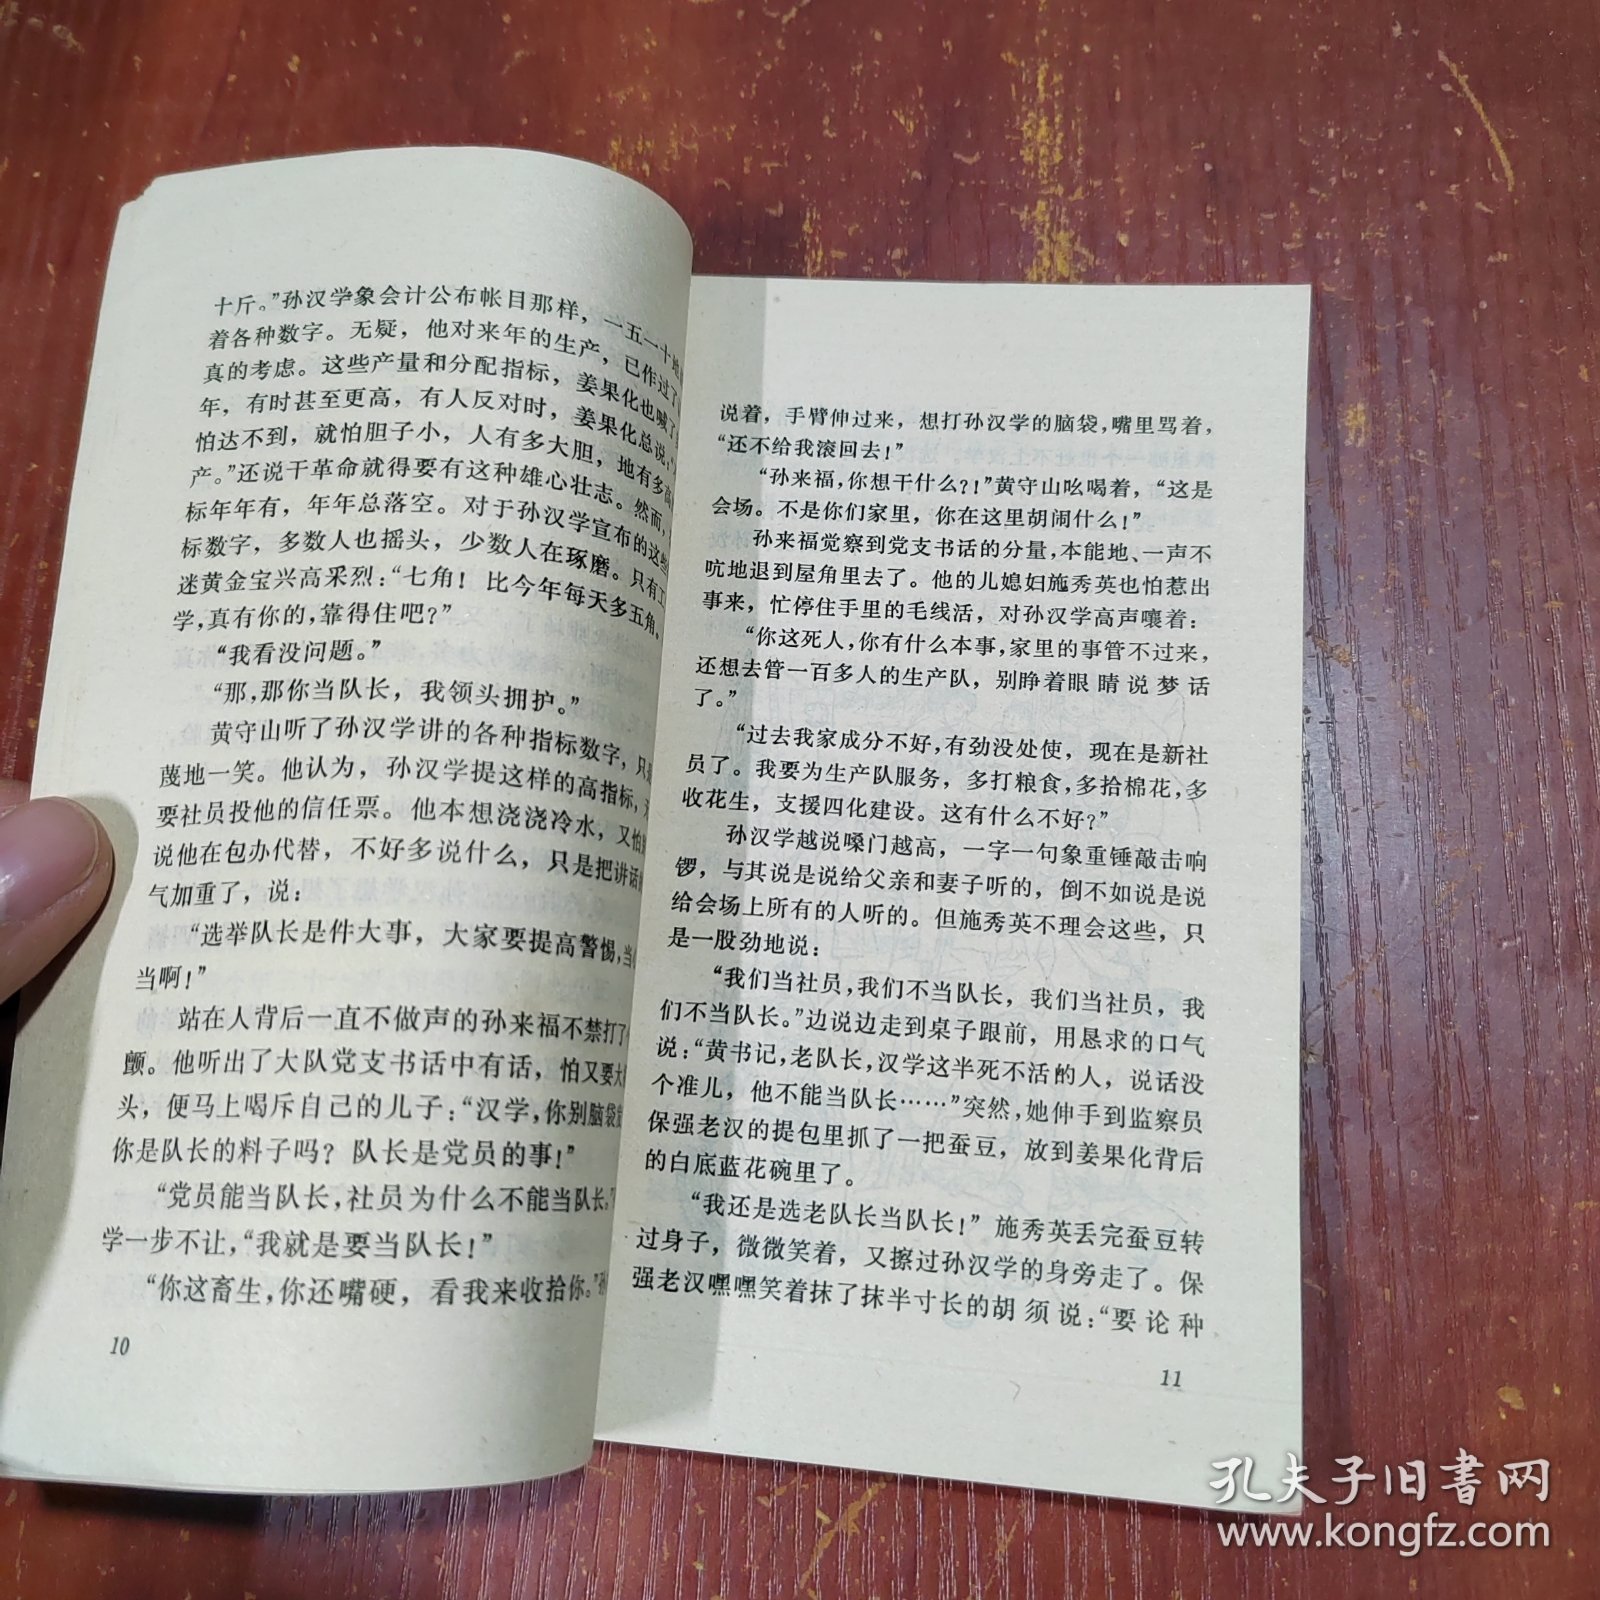 十斤。”孙汉学象会计公布帐目那样，一五一十地
着各种数字。无疑，他对来年的生产，已作过了
真的考虑。这些产量和分配指标，姜果化也喊了
年，有时甚至更高，有人反对时，姜果化总说：“
怕达不到，就怕胆子小，人有多大胆，地有多高
产。”还说干革命就得要有这种雄心壮志。然而，
标年年有，年年总落空。对于孙汉学宣布的这些
标数字，多数人也摇头，少数人在琢磨。只有工
迷黄金宝兴高采烈：“七角！比今年每天多五角。
学，真有你的，靠得住吧？”
“我看没问题。”
“那，那你当队长，我领头拥护。”
黄守山听了孙汉学讲的各种指标数字，只是
蔑地一笑。他认为，孙汉学提这样的高指标，无
要社员投他的信任票。他本想浇浇冷水，又怕
说他在包办代替，不好多说什么，只是把讲话
气加重了，说：
“选举队长是件大事，大家要提高警惕，当心
当啊！”
站在人背后一直不做声的孙来福不禁打了
颤。他听出了大队党支书话中有话，怕又要大
头，便马上喝斥自己的儿子：“汉学，你别脑袋发
你是队长的料子吗？队长是党员的事！”
“党员能当队长，社员为什么不能当队长。”
学一步不让，“我就是要当队长！”
“你这畜生，你还嘴硬，看我来收拾你。”孙
10
说着，手臂伸过来，想打孙汉学的脑袋，嘴里骂着，
“还不给我滚回去！”
“孙来福，你想干什么？！”黄守山吆喝着，“这是
会场。不是你们家里，你在这里胡闹什么！”
孙来福觉察到党支书话的分量，本能地、一声不
吭地退到屋角里去了。他的儿媳妇施秀英也怕惹出
事来，忙停住手里的毛线活，对孙汉学高声嚷着：
“你这死人，你有什么本事，家里的事管不过来，
还想去管一百多人的生产队，别睁着眼睛说梦话
了。”
“过去我家成分不好，有劲没处使，现在是新社
员了。我要为生产队服务，多打粮食，多拾棉花，多
收花生，支援四化建设。这有什么不好？”
孙汉学越说嗓门越高，一字一句象重锤敲击响
锣，与其说是说给父亲和妻子听的，倒不如说是说
给会场上所有的人听的。但施秀英不理会这些，只
是一股劲地说：
“我们当社员，我们不当队长，我们当社员，我
们不当队长。”边说边走到桌子跟前，用恳求的口气
说：“黄书记，老队长，汉学这半死不活的人，说话没
个准儿，他不能当队长……”突然，她伸手到监察员
保强老汉的提包里抓了一把蚕豆，放到姜果化背后
的白底蓝花碗里了。
“我还是选老队长当队长！”施秀英丢完蚕豆转
过身子，微微笑着，又擦过孙汉学的身旁走了。保
强老汉嘿嘿笑着抹了抹半寸长的胡须说：“要论种
11
孔夫子旧书网
www.kongfz.com